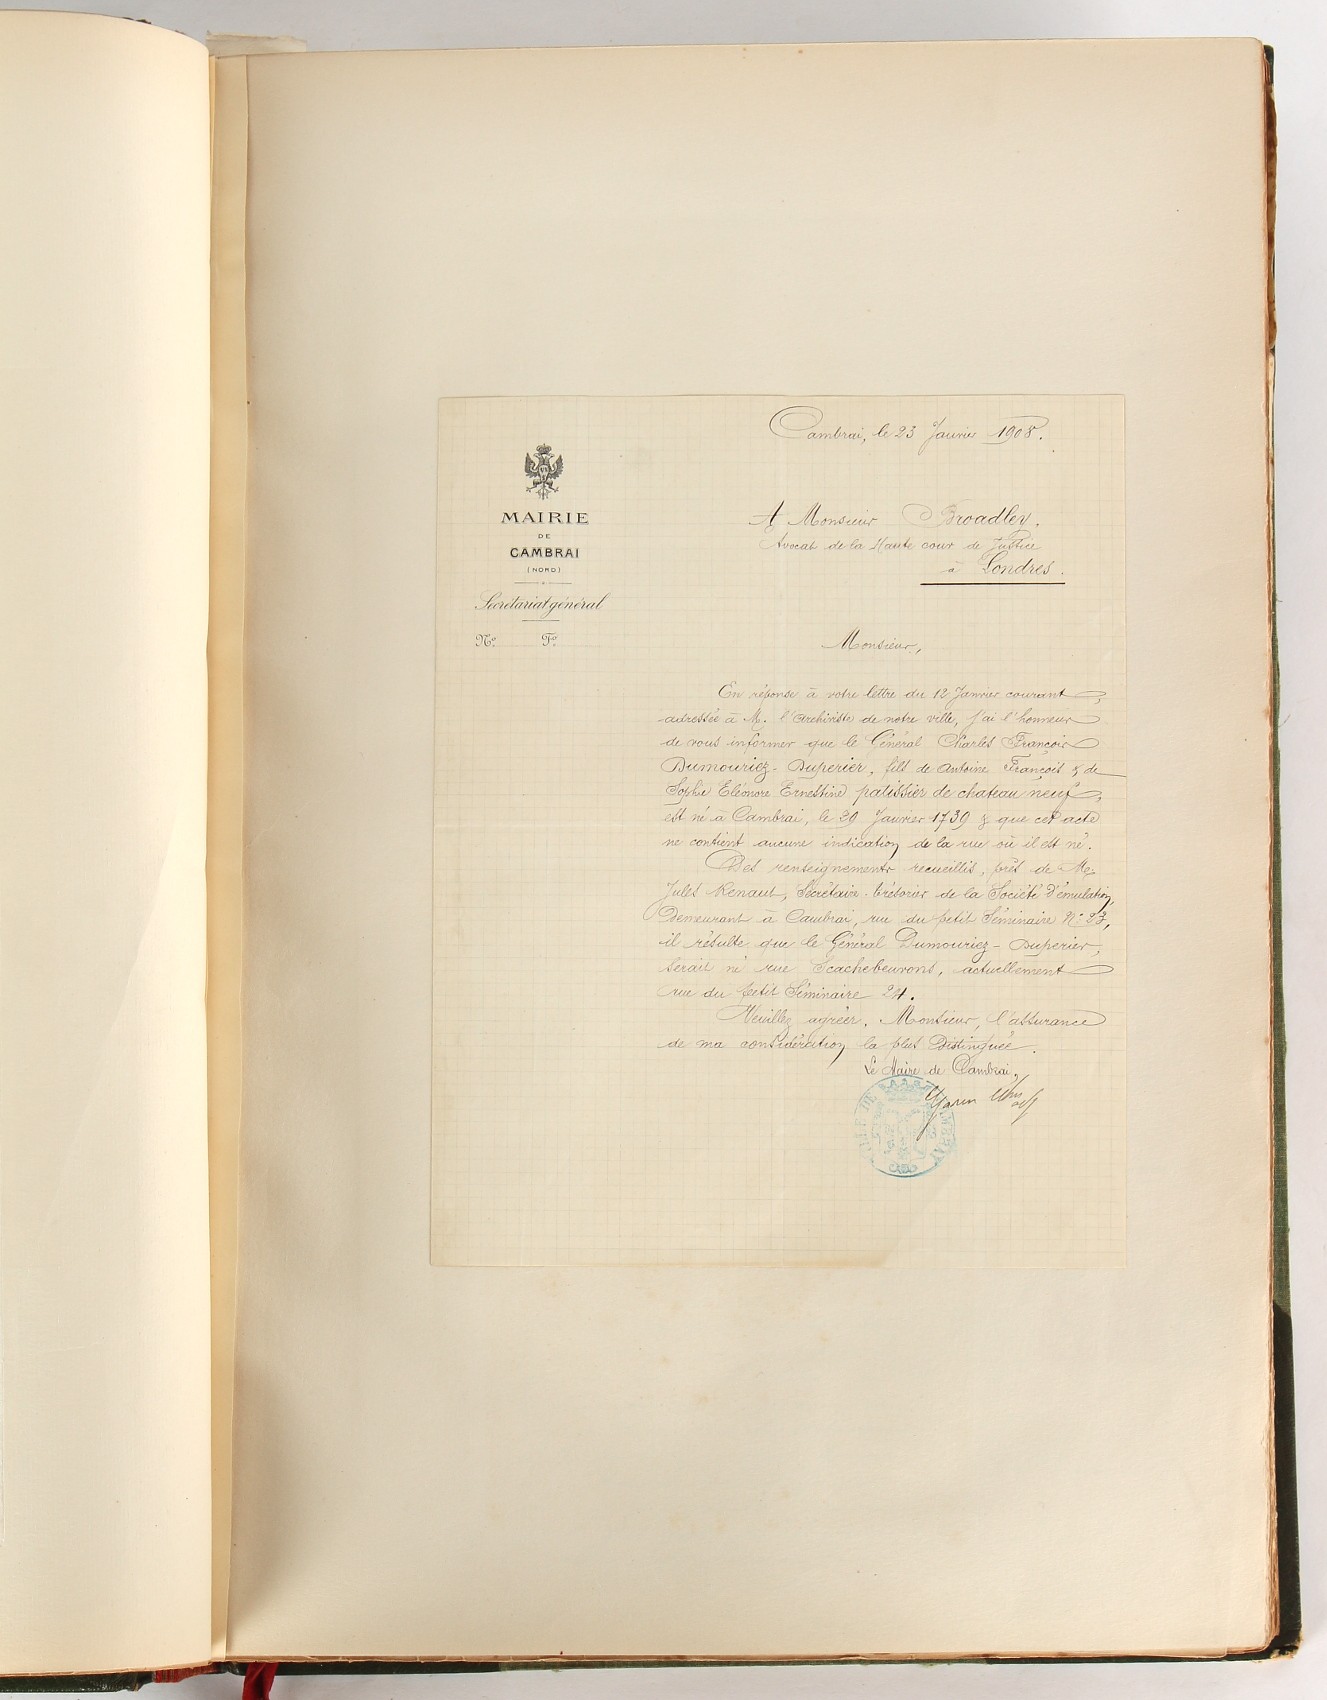 Cambrai, le 23 Janvier 1908.
MAIRIE
DE
CAMBRAI
(NORD)
Secrétariat général
No. Fo.
A Monsieur Broadley.
Avocat de la Haute cour de Justice
à Londres.
Monsieur,
En réponse à votre lettre du 12 Janvier courant,
adressée à M. l'archiviste de notre ville, j'ai l'honneur
de vous informer que le Général Charles François
Dumouriez-Duperier, fils de Antoine François & de
Sophie Eléonore Ernestine patissier de chateau neuf,
est né à Cambrai, le 30 Janvier 1739 & que cet acte
ne contient aucune indication de la rue où il est né.
Des renseignements recueillis, près de Mr.
Jules Renaut, Secrétaire-trésorier de la Société d'émulation,
Demeurant à Cambrai, rue du petit Séminaire No 23,
il résulte que le Général Dumouriez-Duperier,
serait né rue Scachebeuvons, actuellement
rue du petit Séminaire 24.
Veuillez agréer, Monsieur, l'assurance
de ma considération la plus Distinguée.
Le Maire de Cambrai,